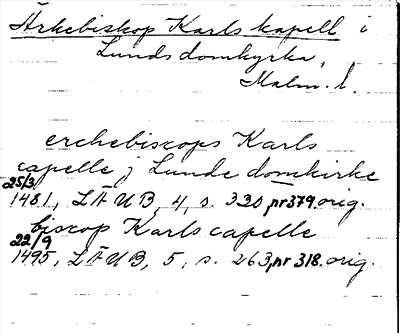 Ärkebiskop Karls kapell i
Lunds domkyrka,
Malm. l.
erchebiscops Karls
capelle j Lunde domkirke
25/3
1481, LÄUB, 4, s. 330, nr 379. orig.
biscop Karls capelle
22/9
1495, LÄUB, 5, s. 263, nr 318. orig.